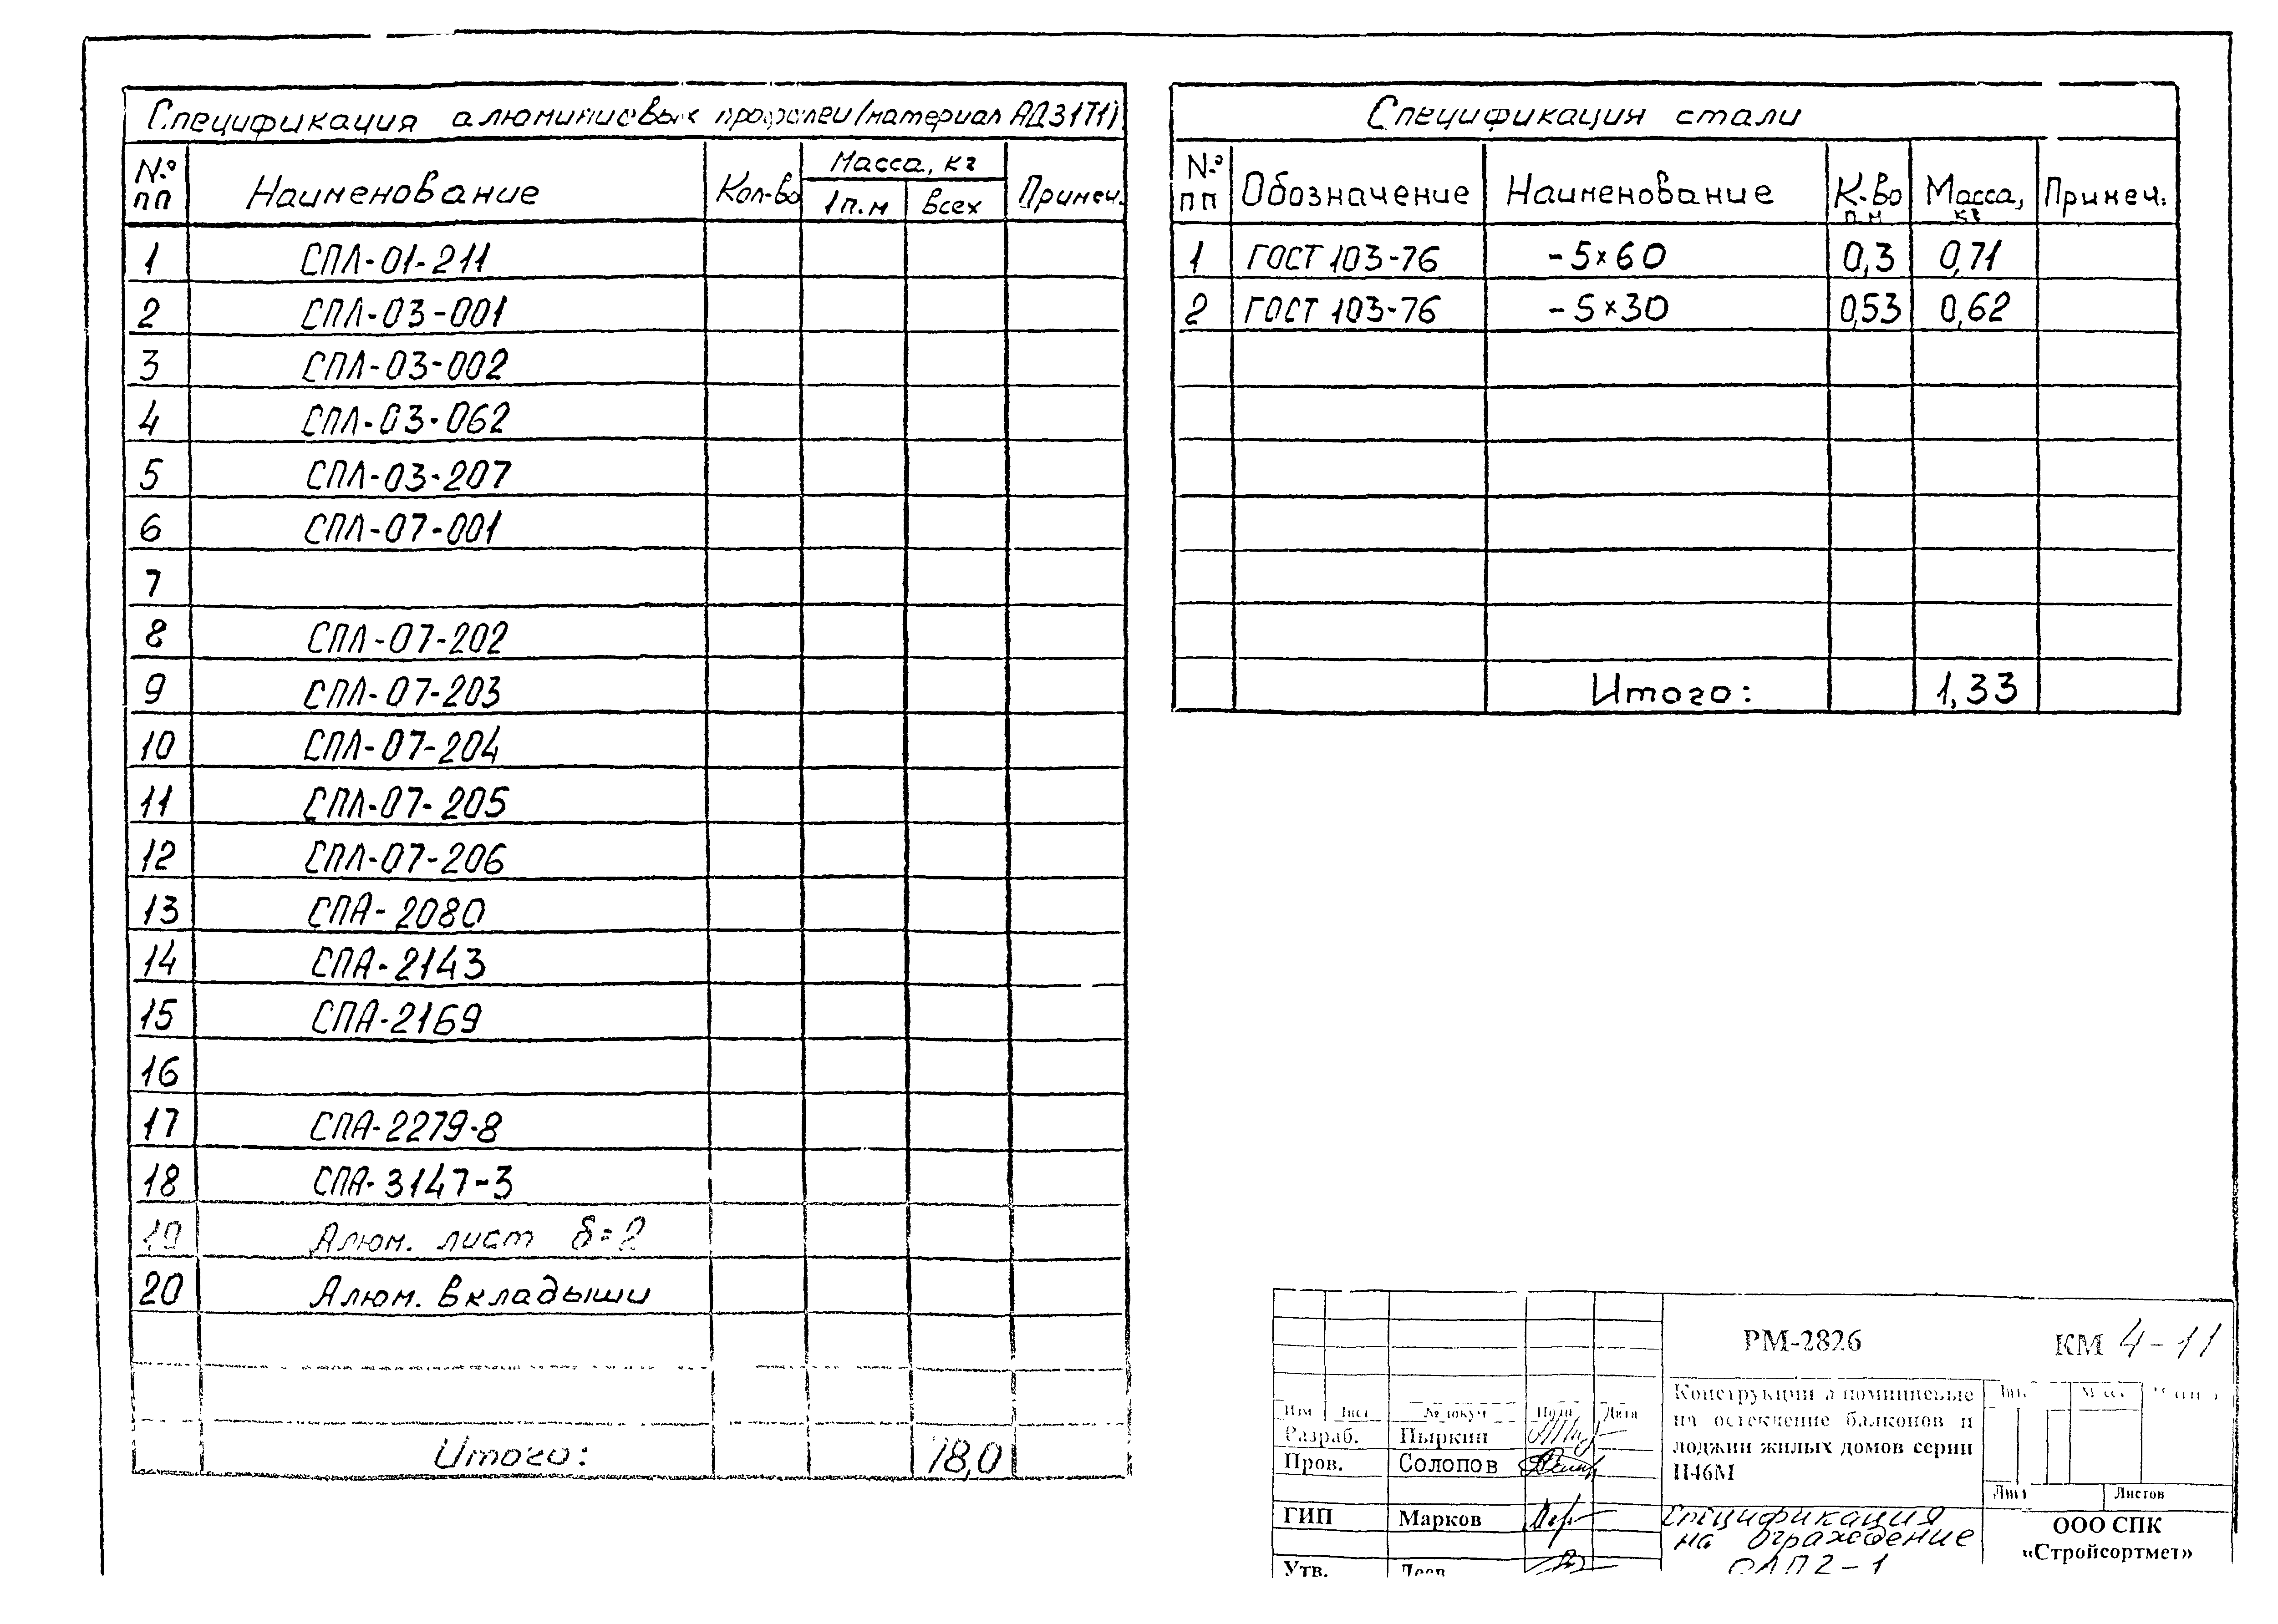 Спецификация алюминиевых профилей (материал АД31Т1)
№ пп Наименование Кол-во Масса, кг Примеч.
1п.м всех
1 СПЛ-01-211
2 СПЛ-03-001
3 СПЛ-03-002
4 СПЛ-03-062
5 СПЛ-03-207
6 СПЛ-07-001
7
8 СПЛ-07-202
9 СПЛ-07-203
10 СПЛ-07-204
11 СПЛ-07-205
12 СПЛ-07-206
13 СПА-2080
14 СПА-2143
15 СПА-2169
16
17 СПА-2279-8
18 СПА-3147-3
19 Алюм. лист δ=2
20 Алюм. вкладыши
Итого: 78,0
Спецификация стали
№ пп Обозначение Наименование К-во п.м Масса, кг Примеч.
1 ГОСТ 103-76 -5×60 0,3 0,71
2 ГОСТ 103-76 -5×30 0,53 0,62
Итого: 1,33
РМ-2826 КМ 4-11
Изм Лист № докум Подп. Дата
Разраб. Пыркин
Пров. Солопов
ГИП Марков
Утв.
Конструкции алюминиевые
на остекление балконов и
лоджии жилых домов серии
П46М
Лист Листов
Спецификация
на ограждение
ОЛП2-1
ООО СПК
«Стройсортмет»